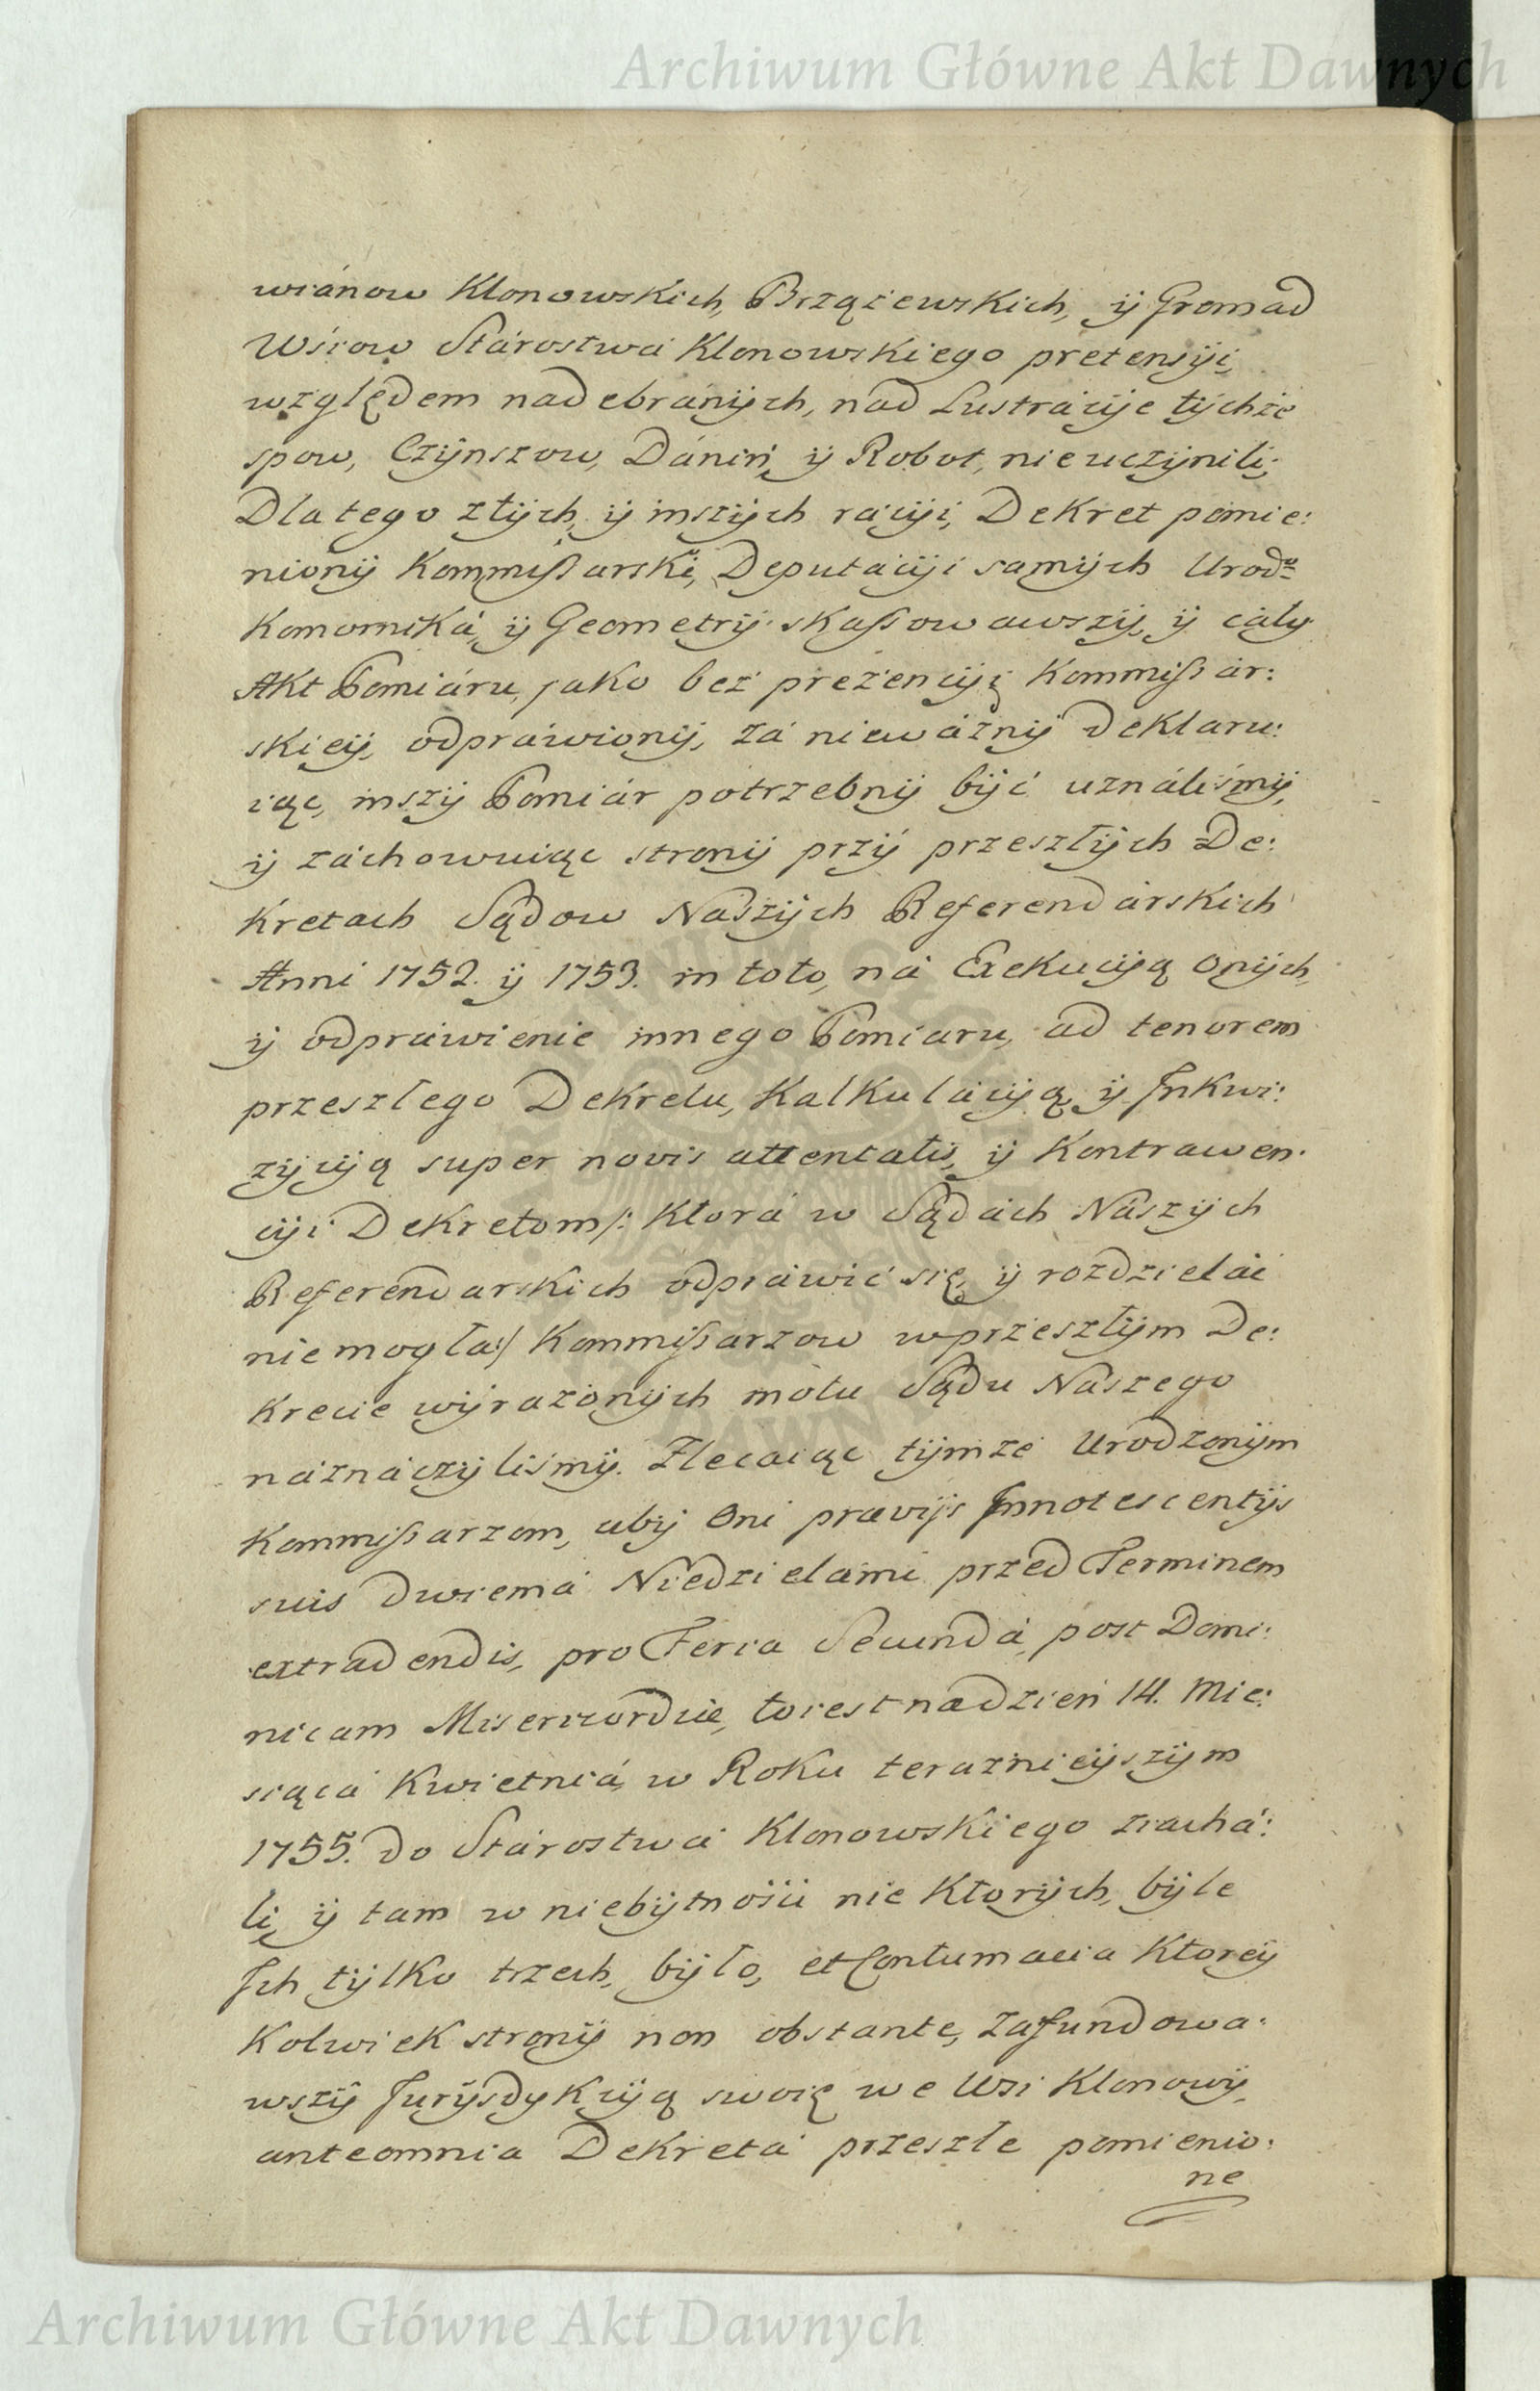 Archiwum Główne Akt Dawnych
wiánow Klonowskich, Brząźewskich, ÿ Gromad
Wśiow Stárostwá Klonowskiego pretensÿi,
względem nadebránÿch, nad Lustrácÿe tÿchże
spow, Czÿnszow, Dánin, ÿ Robot, nieuczÿnili;
Dlatego ztÿch, ÿ inszÿch rácÿi, Dekret pomie:
nionÿ Kommißarski, Deputácÿi samÿch Urodz:
Komorniká, ÿ Geometrÿ skaßowawszÿ, ÿ cáłÿ
Akt Pomiáru, jako beż preżencÿi Kommißár:
skieÿ, odpráwionÿ, zá nieważnÿ deklaru:
iąc, inszÿ Pomiár potrzebnÿ bÿć uználiśmÿ,
ÿ záchowuiąc stronÿ przÿ przeszłÿch De:
kretach Sądow Naszÿch Referendárskich
Anni 1752. ÿ 1753. in toto, ná Exekucÿą onÿch,
ÿ odpráwienie innego Pomiaru, ad tenorem
przeszłego Dekretu, Kalkulácÿą, ÿ Inkwi:
zÿcÿą super novis attentatis, ÿ Kontrawen:
cÿi Dekretom /: Ktorá w Sądách Nászÿch
Referendarskich odpráwić się, ÿ rozdzieláć
niemogła :/ Kommißarzow w przeszłÿm De:
krecie wÿrażonÿch motu Sądu Nászego
náználczÿliśmÿ. Zlecaiąc tÿmże Urodzonÿm
Kommißarzom, abÿ Oni prævijs Innotescentÿs
suis dwiemá Niedzielámi przed Terminem
extradendis, pro Feria Secundá, post Domi:
nicam Misericordiæ, to iest ná dzień 14. Mie:
siącá Kwietniá, w Roku teraźnieÿszÿm
1755. do Stárostwá Klonowskiego ziachá:
li, ÿ tam w niebÿtnośći nie Ktorÿch, bÿle
Ich tÿlko trzech, bÿło, et Contumacia Ktoreÿ
Kolwiek stronÿ non obstante, zafundowa:
wszÿ Jurÿsdÿkcÿą swoię we Wsi Klonowÿ,
anteomnia Dekretá przeszłe pomienio:
ne
Archiwum Główne Akt Dawnych